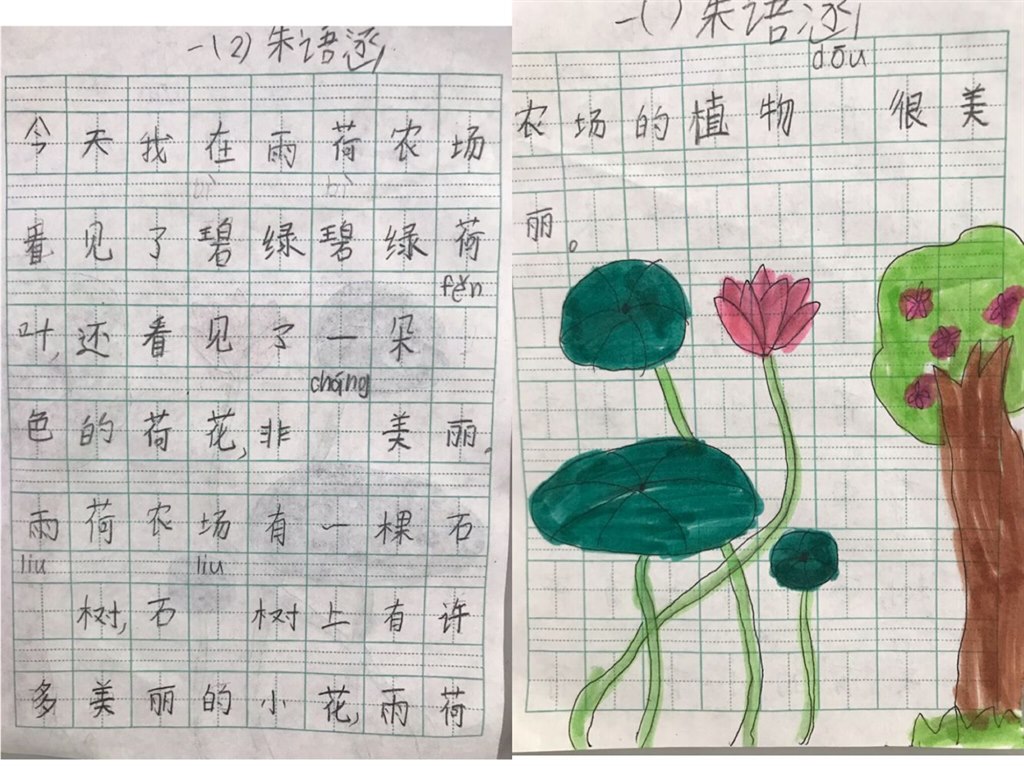 一(2) 朱语涵
今天我在雨荷农场
bì bì
看见了碧绿碧绿荷
fěn
叶,还看见了一朵
cháng
色的荷花,非 美丽.
雨荷农场有一棵石
liu liu
树,石 树上有许
多美丽的小花,雨荷
一( ) 朱语涵
dōu
农场的植物 很美
丽。